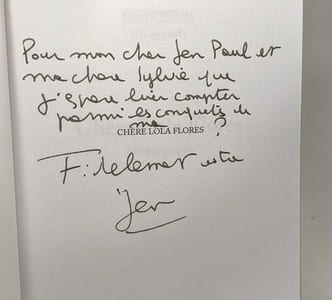 Pour mon cher Jen Paul et
ma chère Sylvie que
j'espère bien compter
parmi les conquêtes de
ma
CHÈRE LOLA FLORES ?
Fidèlement votre
Jen